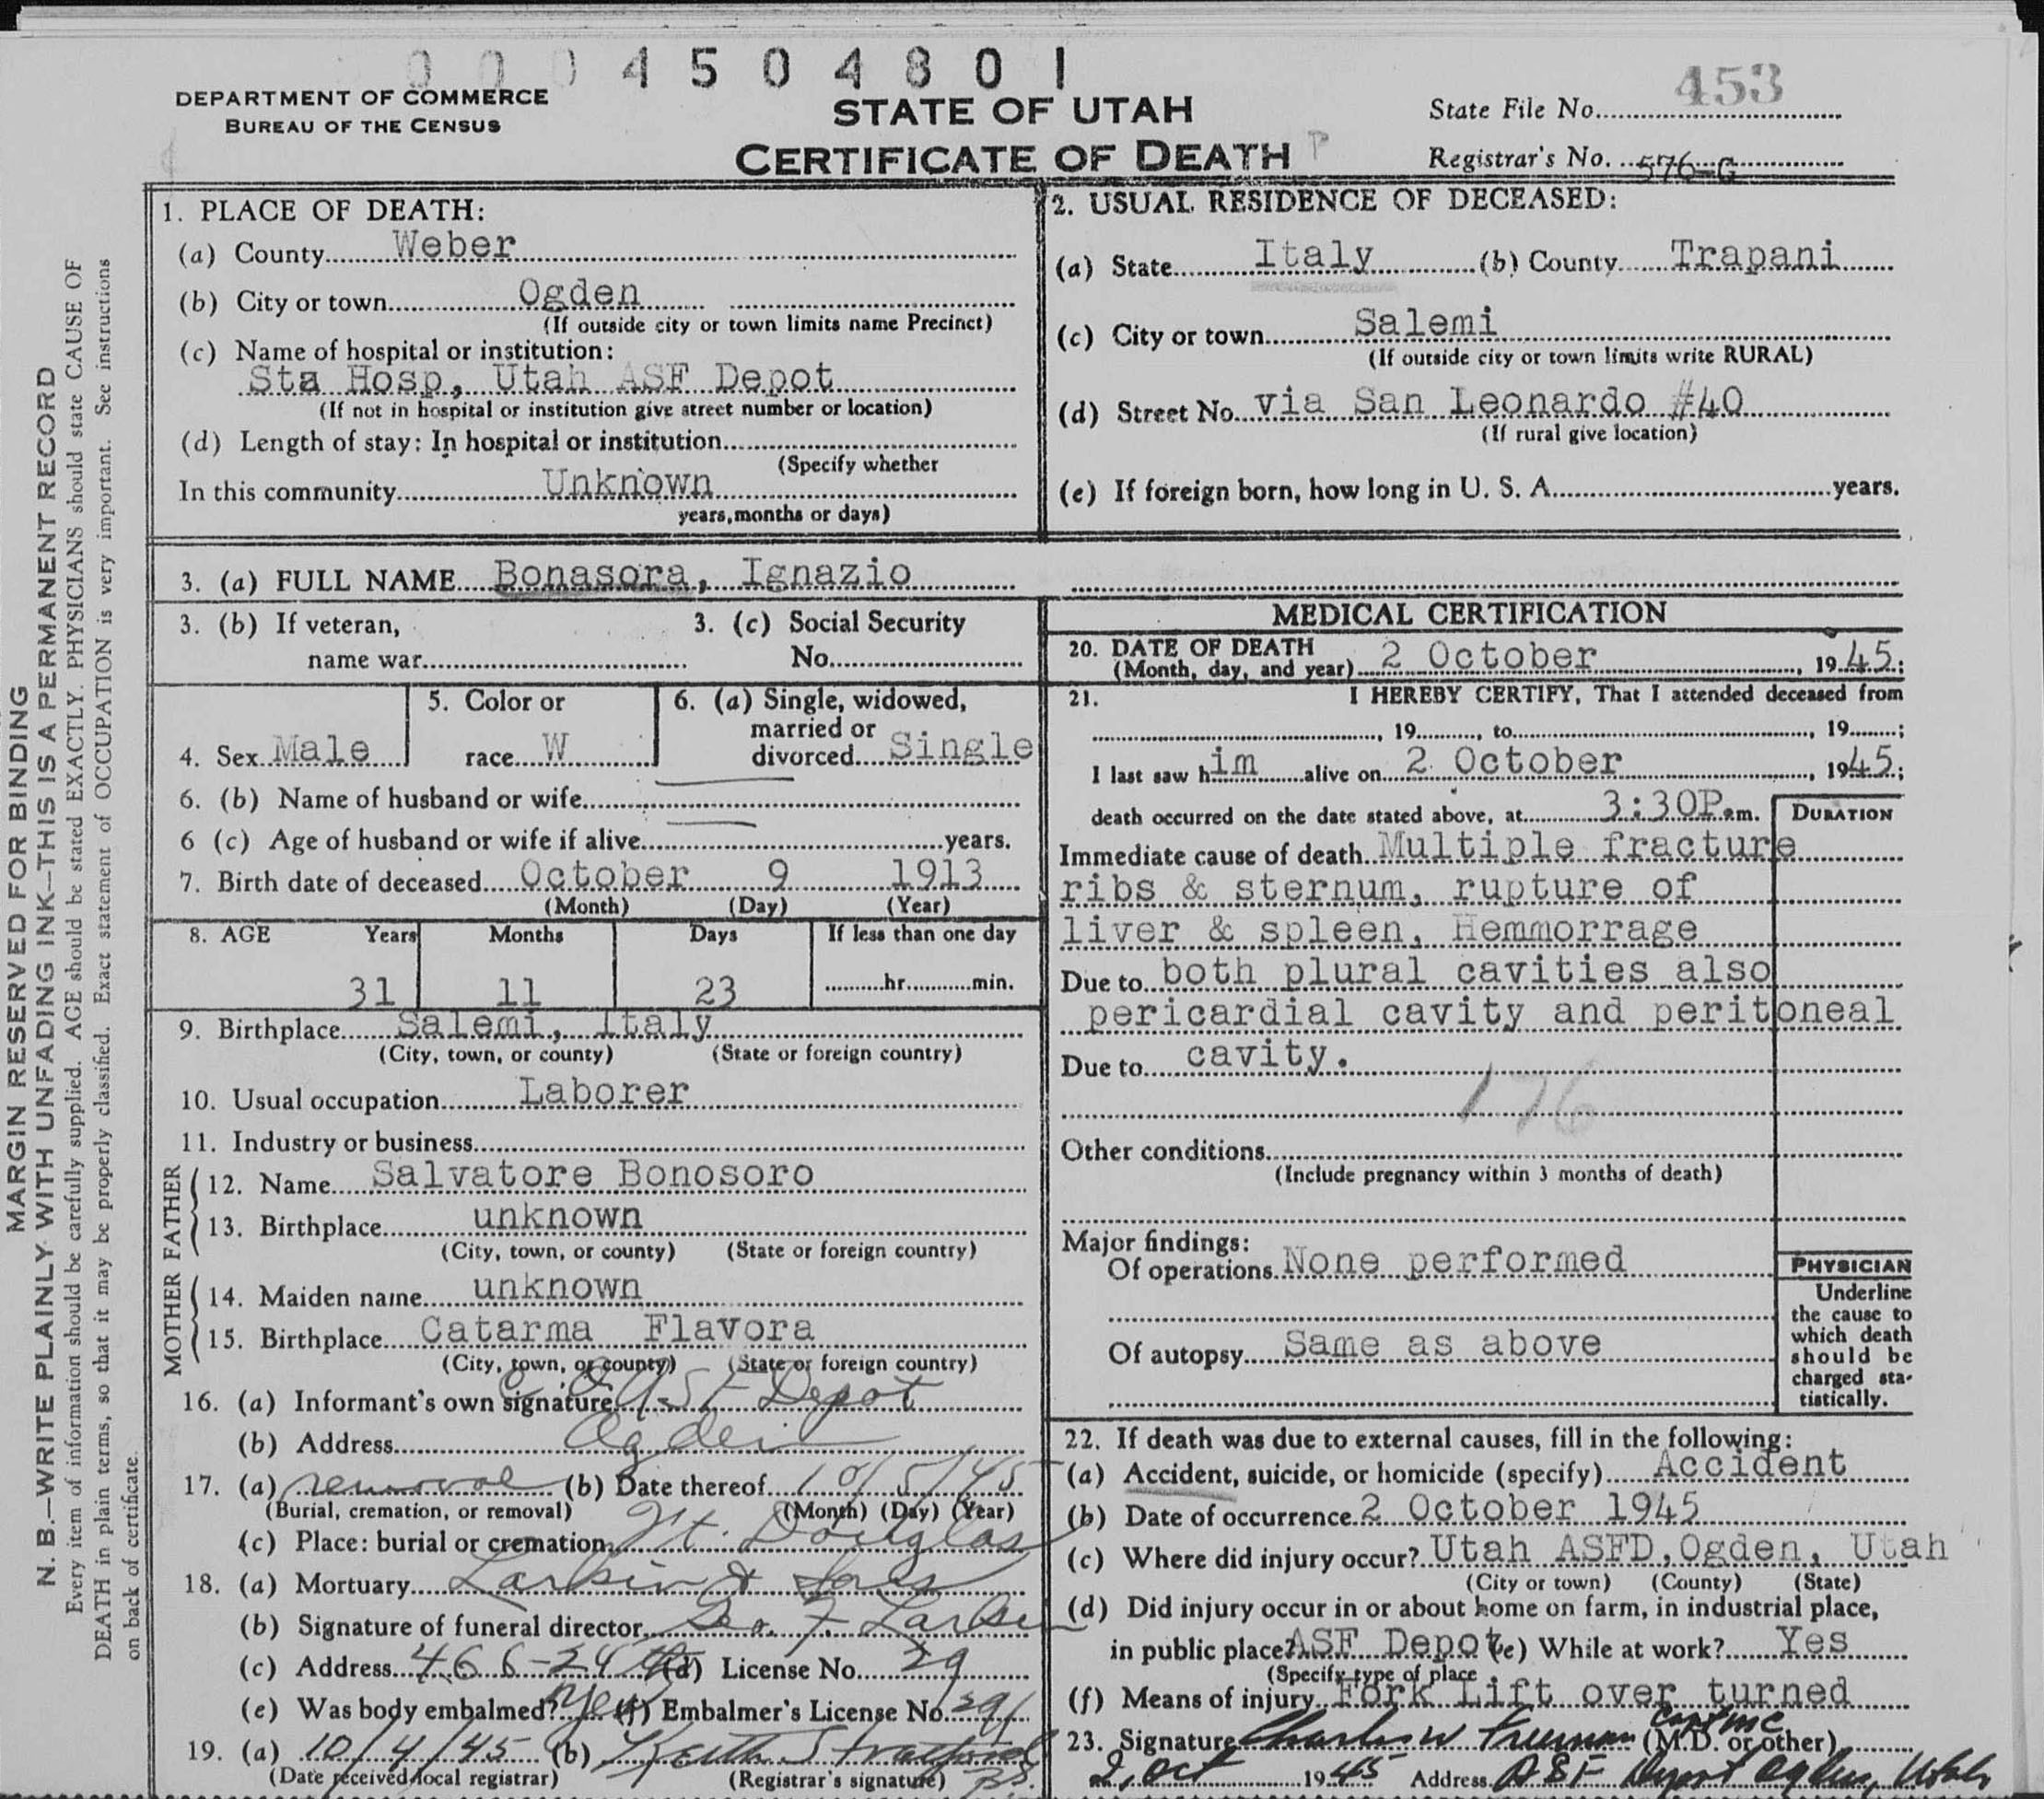 0 0 0 4 5 0 4 8 0 1
DEPARTMENT OF COMMERCE
BUREAU OF THE CENSUS
STATE OF UTAH
CERTIFICATE OF DEATH
State File No. 453
Registrar's No. 576-G
MARGIN RESERVED FOR BINDING
N. B.—WRITE PLAINLY WITH UNFADING INK—THIS IS A PERMANENT RECORD
Every item of information should be carefully supplied. AGE should be stated EXACTLY. PHYSICIANS should state CAUSE OF
DEATH in plain terms, so that it may be properly classified. Exact statement of OCCUPATION is very important. See instructions
on back of certificate.
1. PLACE OF DEATH:
(a) County Weber
(b) City or town Ogden
(If outside city or town limits name Precinct)
(c) Name of hospital or institution:
Sta Hosp, Utah ASF Depot
(If not in hospital or institution give street number or location)
(d) Length of stay: In hospital or institution
(Specify whether
In this community Unknown
years, months or days)
2. USUAL RESIDENCE OF DECEASED:
(a) State Italy (b) County Trapani
(c) City or town Salemi
(If outside city or town limits write RURAL)
(d) Street No. via San Leonardo #40
(If rural give location)
(e) If foreign born, how long in U. S. A. years.
3. (a) FULL NAME Bonasora, Ignazio
3. (b) If veteran,
name war
3. (c) Social Security
No.
4. Sex Male
5. Color or
race W
6. (a) Single, widowed,
married or
divorced Single
6. (b) Name of husband or wife
6 (c) Age of husband or wife if alive years.
7. Birth date of deceased October 9 1913
(Month) (Day) (Year)
8. AGE Years Months Days If less than one day
31 11 23 hr. min.
9. Birthplace Salemi, Italy
(City, town, or county) (State or foreign country)
10. Usual occupation Laborer
11. Industry or business
FATHER
12. Name Salvatore Bonosoro
13. Birthplace unknown
(City, town, or county) (State or foreign country)
MOTHER
14. Maiden name unknown
15. Birthplace Catarma Flavora
(City, town, or county) (State or foreign country)
16. (a) Informant's own signature Depot
(b) Address Ogden
17. (a) removal (b) Date thereof 10/5/45
(Burial, cremation, or removal) (Month) (Day) (Year)
(c) Place: burial or cremation Ft. Douglas
18. (a) Mortuary Larkin & Sons
(b) Signature of funeral director Geo. F. Larkin
(c) Address 466-24th (d) License No. 29
(e) Was body embalmed? Yes (f) Embalmer's License No. 291
19. (a) 10/4/45 (b) Keith Stratford
(Date received local registrar) (Registrar's signature)
MEDICAL CERTIFICATION
20. DATE OF DEATH
(Month, day, and year) 2 October, 1945;
21. I HEREBY CERTIFY, That I attended deceased from
, 19 , to , 19 ;
I last saw him alive on 2 October, 1945;
death occurred on the date stated above, at 3:30P.m.
DURATION
Immediate cause of death Multiple fracture
ribs & sternum, rupture of
liver & spleen, Hemmorrage
Due to both plural cavities also
pericardial cavity and peritoneal
Due to cavity.
176
Other conditions
(Include pregnancy within 3 months of death)
Major findings:
Of operations None performed
Of autopsy Same as above
PHYSICIAN
Underline
the cause to
which death
should be
charged sta-
tistically.
22. If death was due to external causes, fill in the following:
(a) Accident, suicide, or homicide (specify) Accident
(b) Date of occurrence 2 October 1945
(c) Where did injury occur? Utah ASFD, Ogden, Utah
(City or town) (County) (State)
(d) Did injury occur in or about home on farm, in industrial place,
in public place? ASF Depot (e) While at work? Yes
(Specify type of place
(f) Means of injury Fork Lift over turned
23. Signature Charles W Freeman Capt MC (M.D. or other)
2, Oct 1945 Address ASF Depot Ogden, Utah